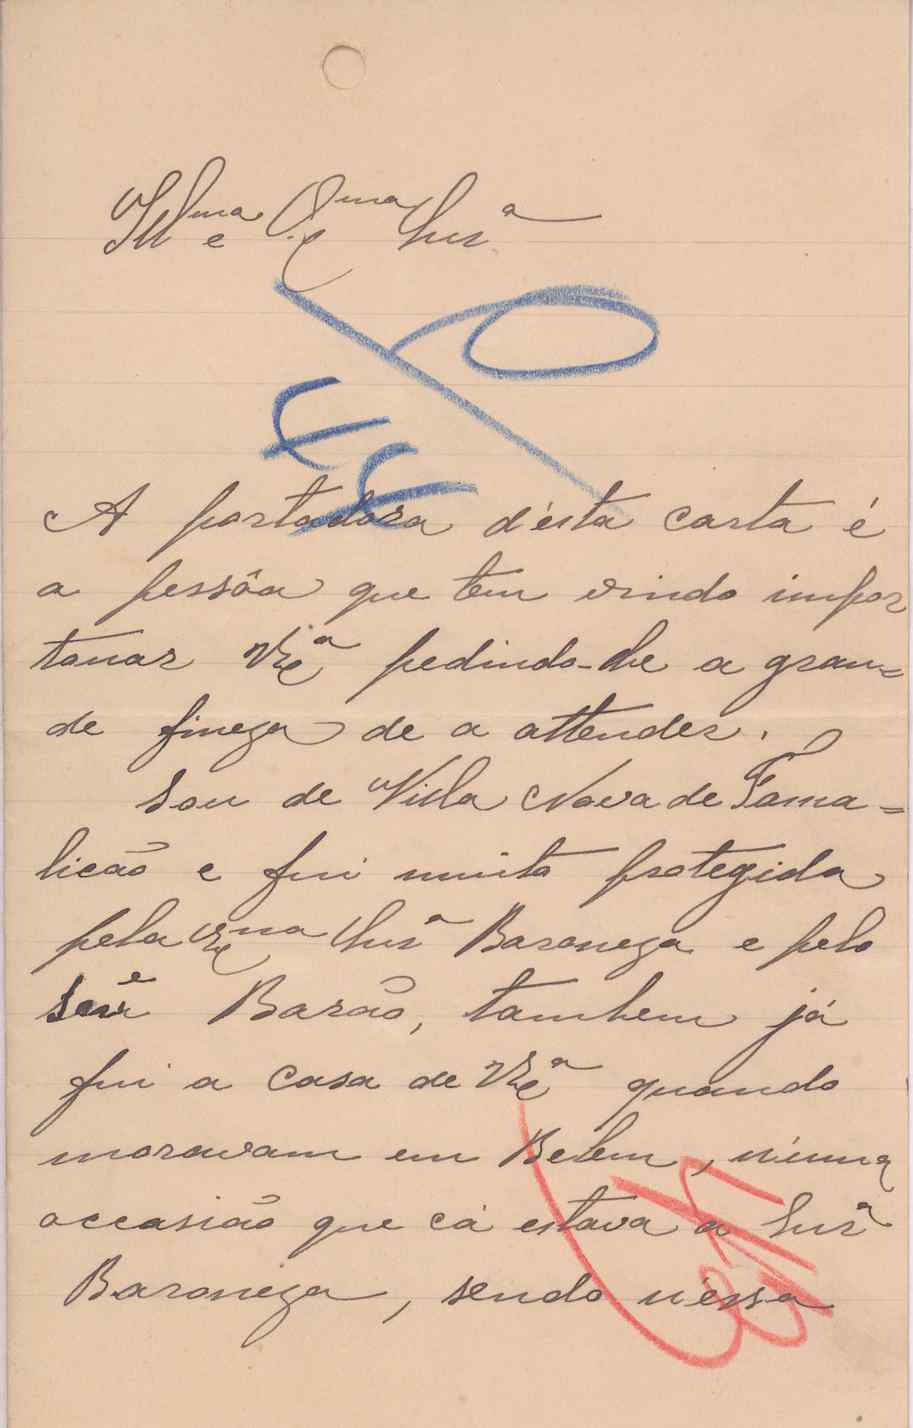 Illma e Exma Snrª
A portadora d'ésta carta é
a pessôa que tem vindo impor
tonar V. Exª pedindo-lhe a gran=
de fineza de a attender.
Sou de Villa Nova de Fama=
licão e fui muito protegida
pela Exma Snrª Baroneza e pelo
Snr Barão, tambem já
fui a casa de V. Exª quando
moravam em Belem, n'uma
occasião que cá estava a Snrª
Baroneza, sendo n'éssa